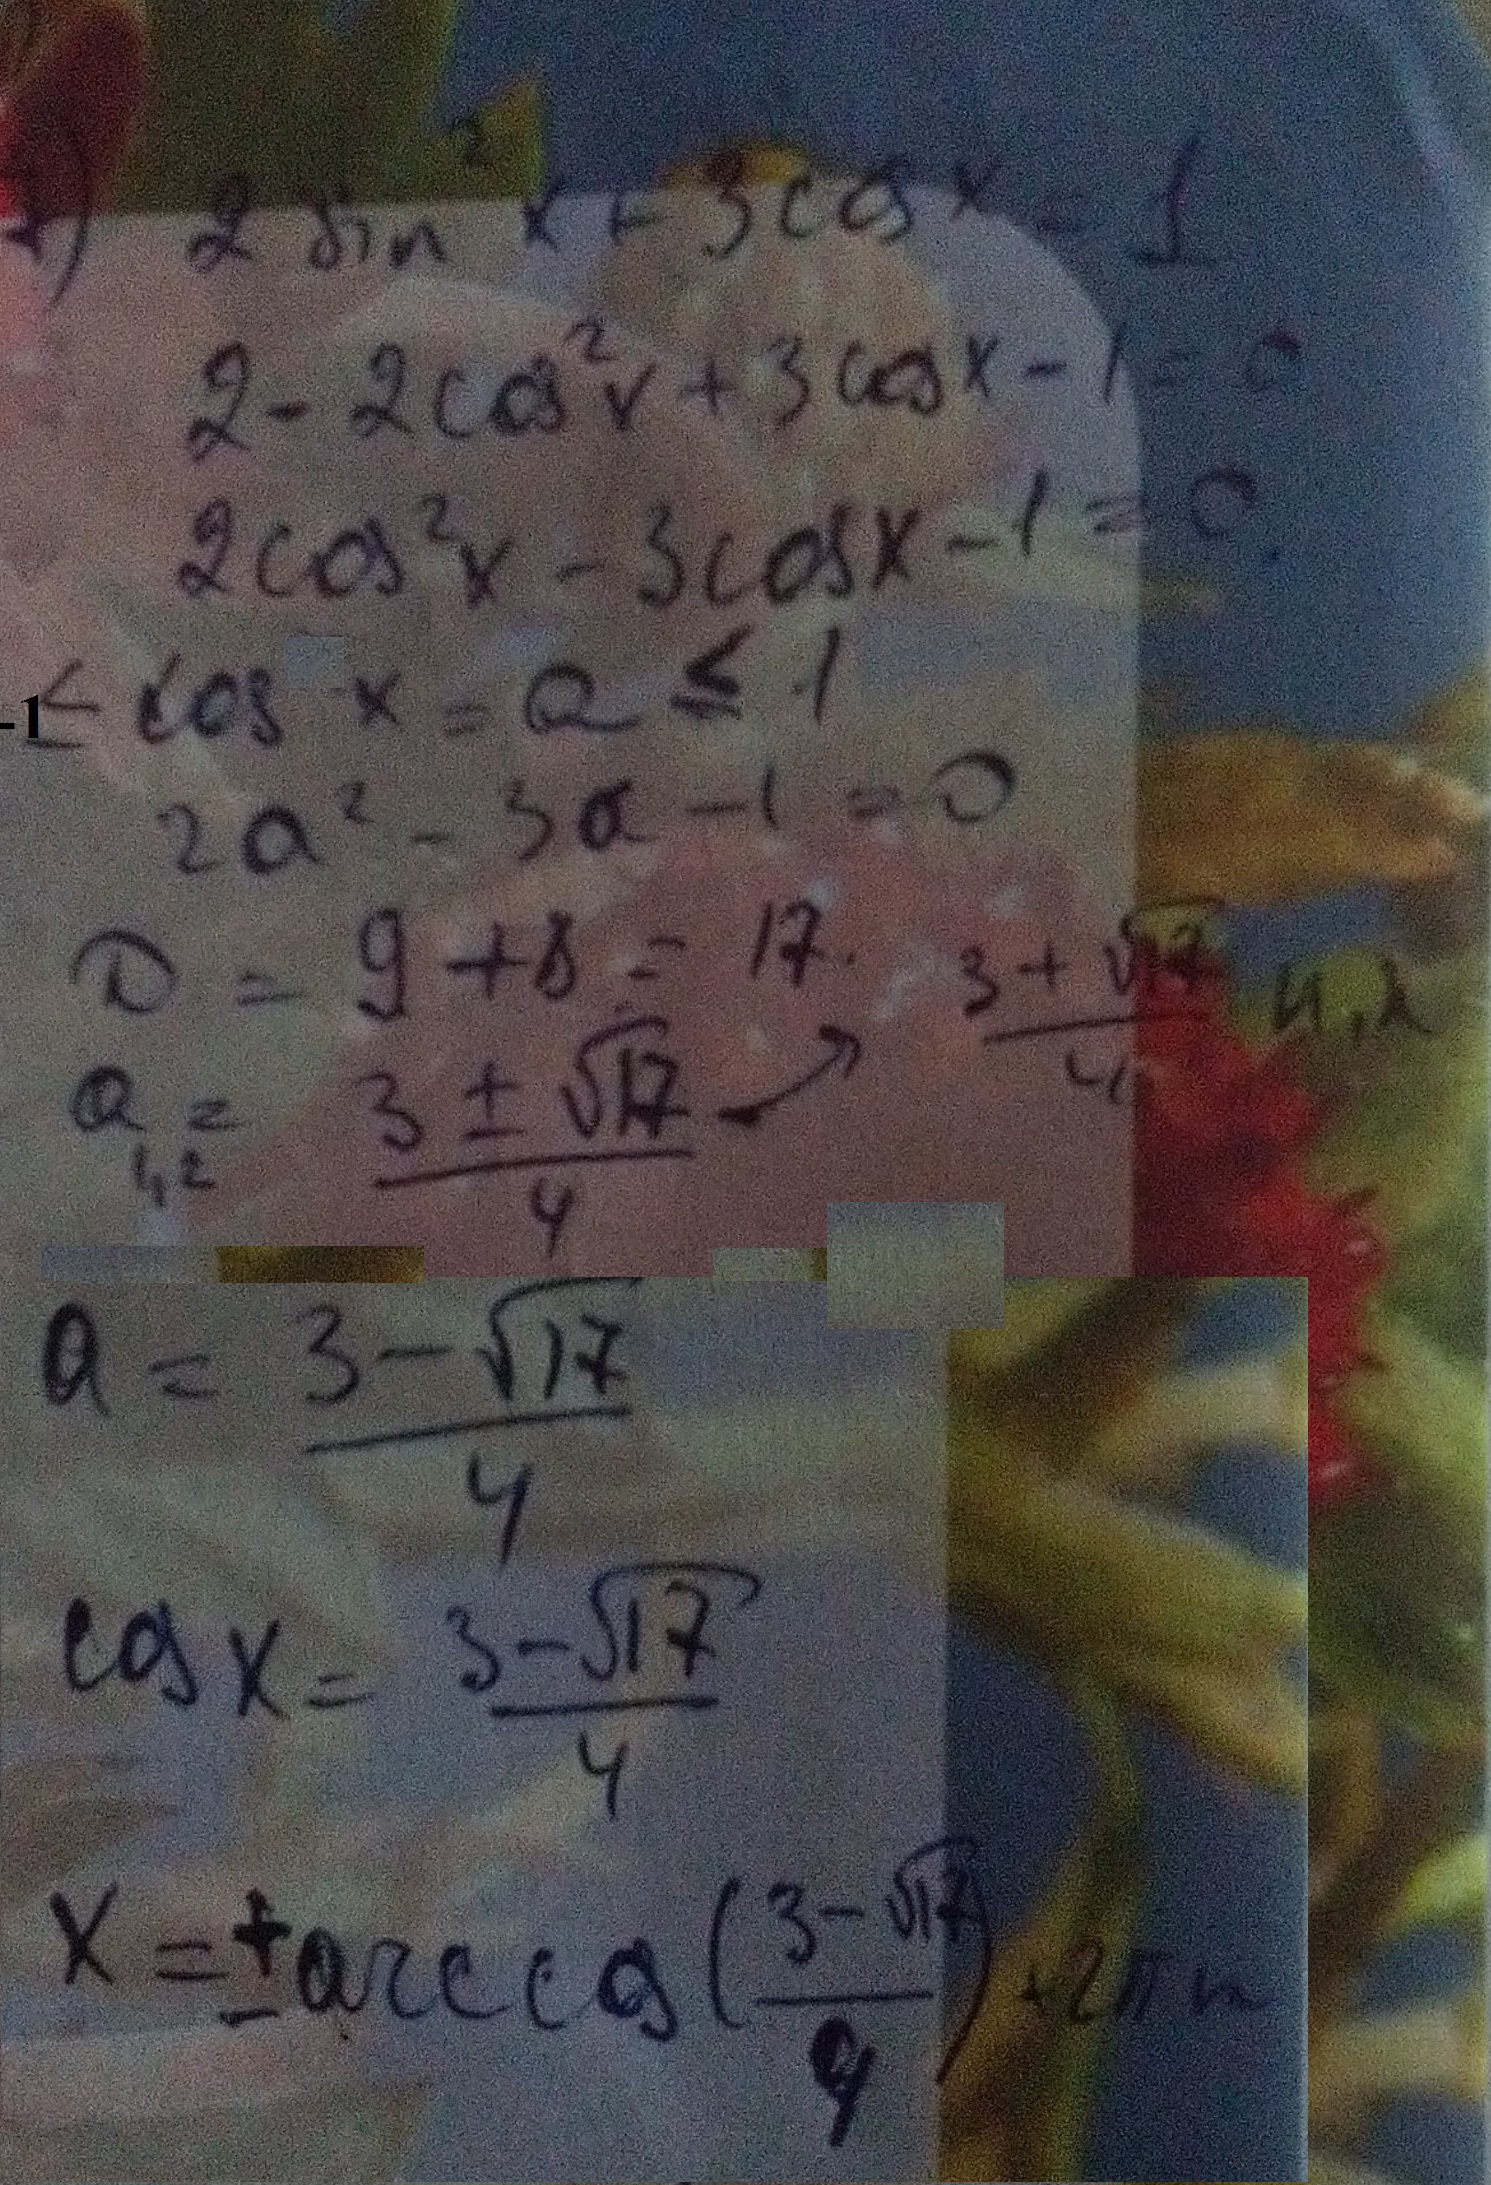 1) 2 sin² x + 3 cos x = 1
2 - 2 cos² x + 3 cos x - 1 = 0
2 cos² x - 3 cos x - 1 = 0.
-1 ≤ cos x = a ≤ 1
2a² - 3a - 1 = 0
D = 9 + 8 = 17.
a₁,₂ = (3 ± √17)/4 → (3 + √17)/4
a = (3 - √17)/4
cos x = (3 - √17)/4
x = ± arccos ((3 - √17)/4) + 2πn